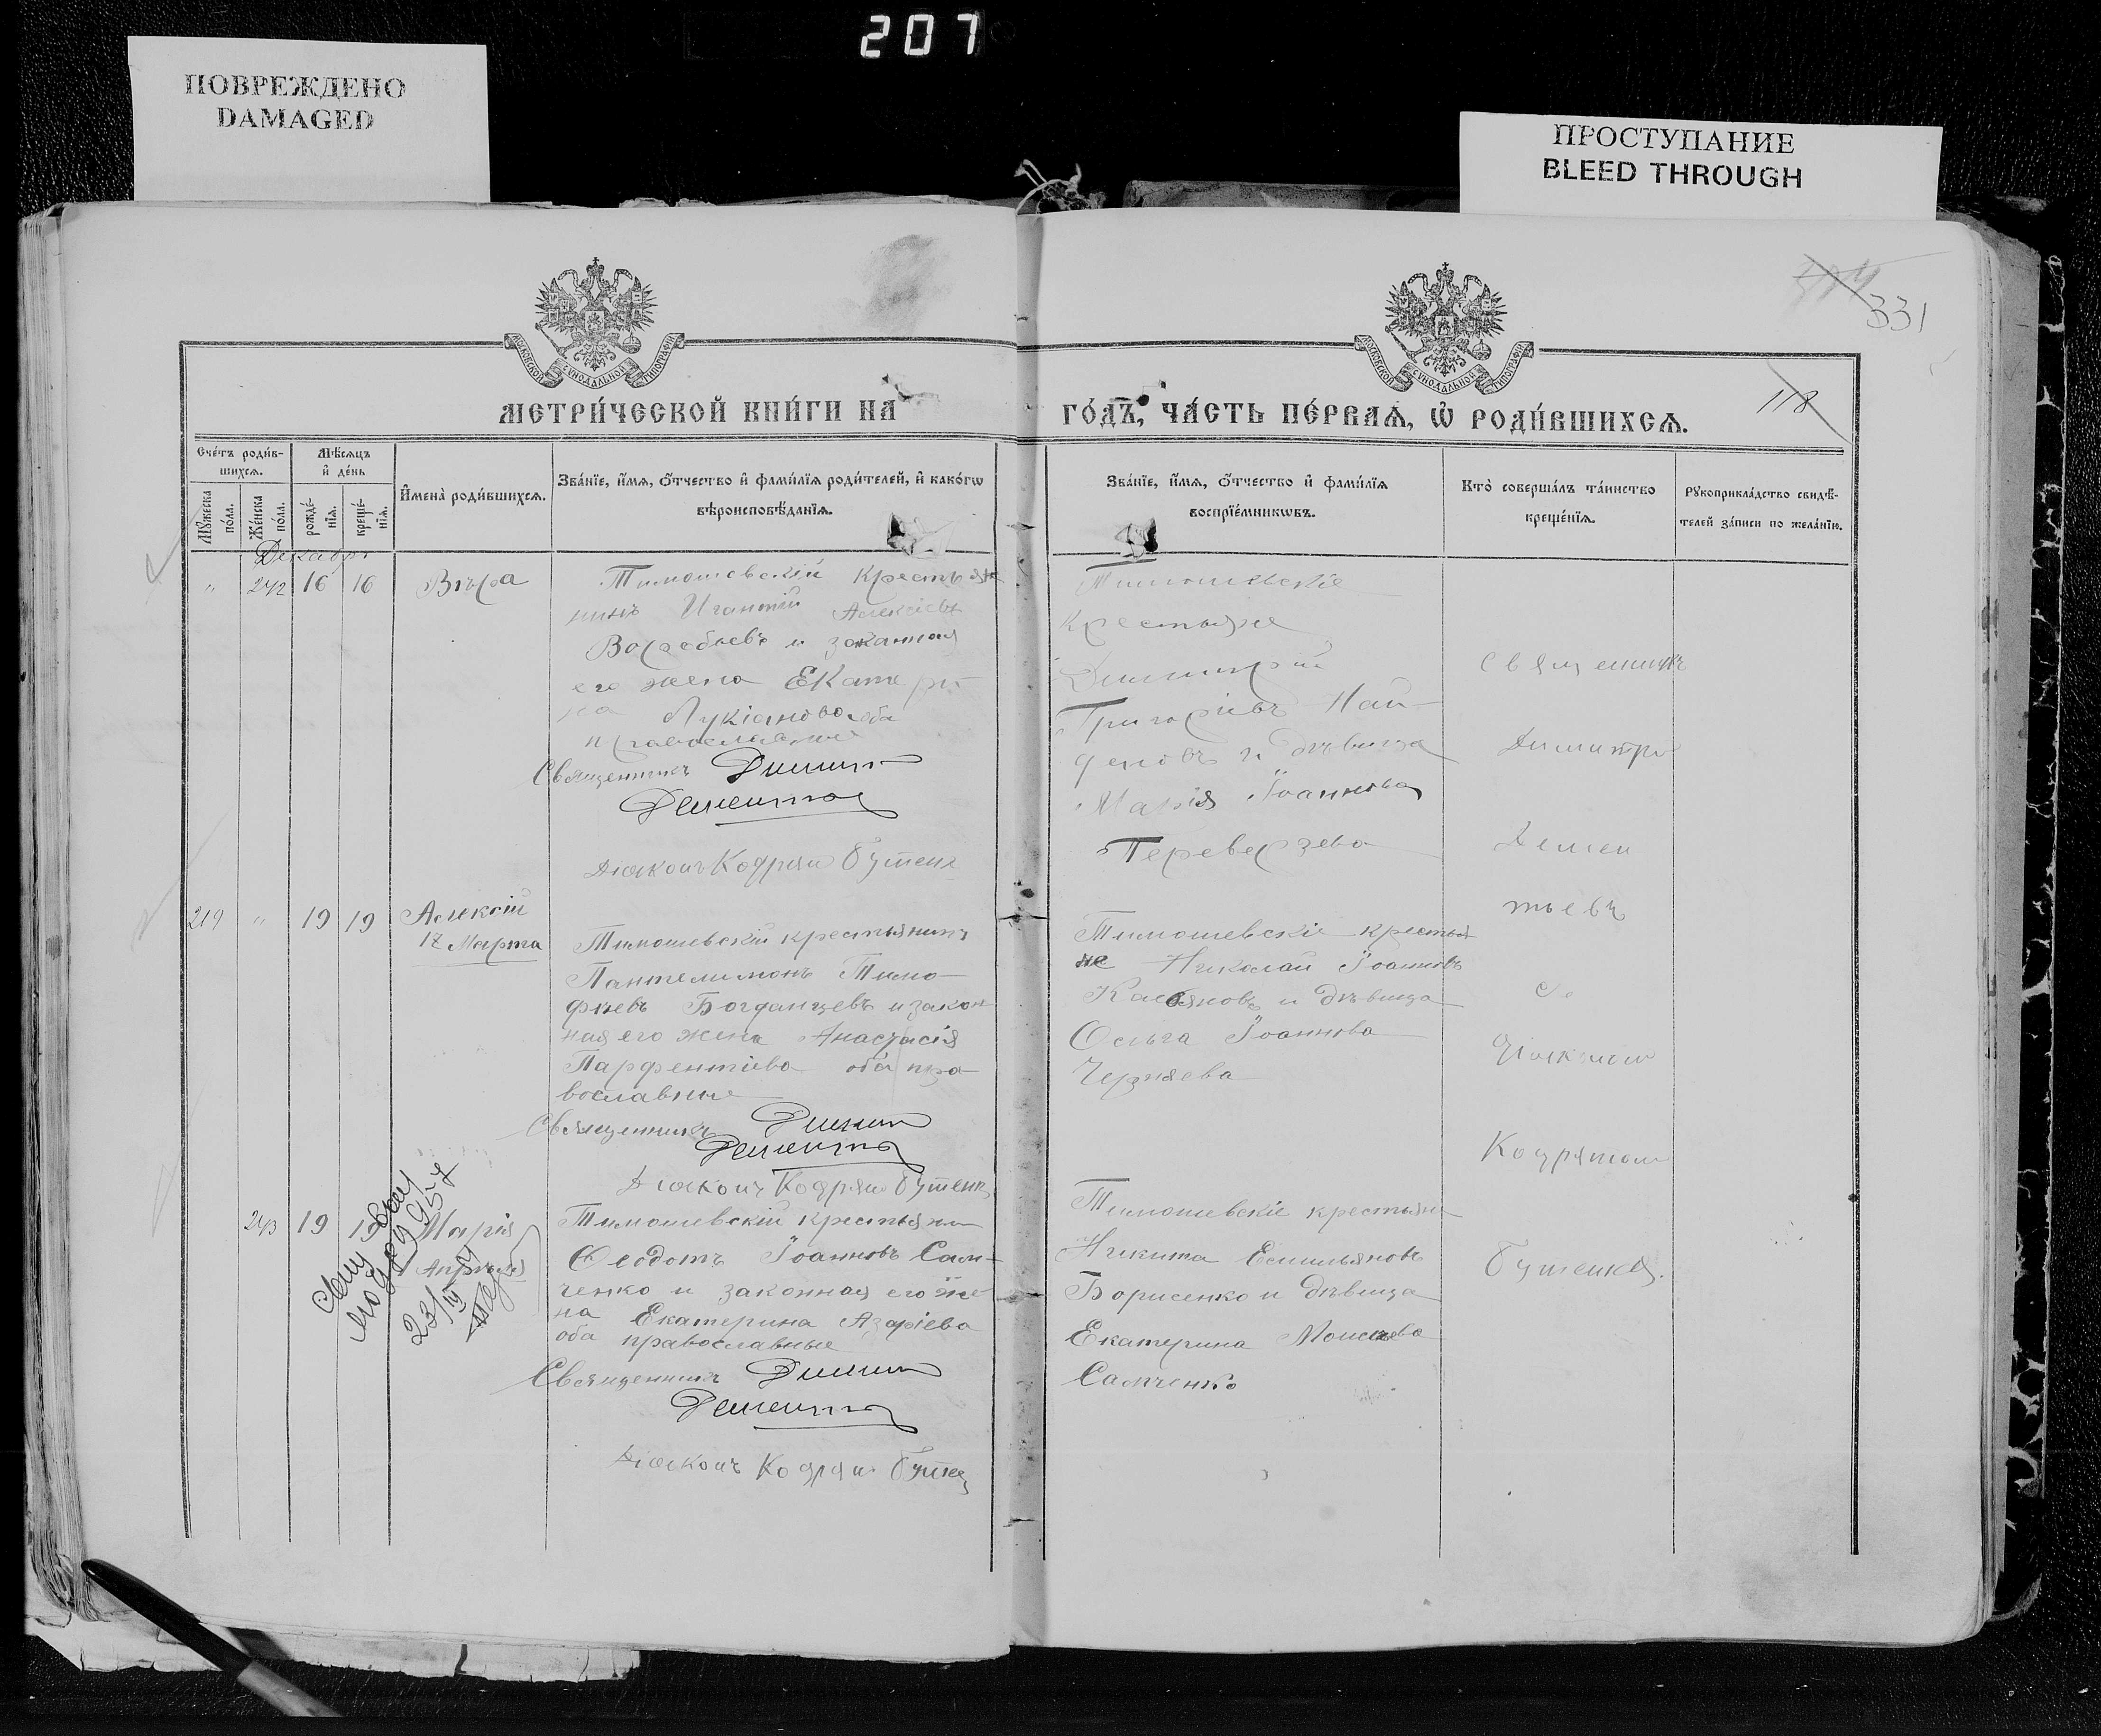 207
ПОВРЕЖДЕНО
DAMAGED
ПРОСТУПАНИЕ
BLEED THROUGH
331
118
МОСКОВСКОЙ СѴНОДАЛЬНОЙ ТИПОГРАФІИ
МОСКОВСКОЙ СѴНОДАЛЬНОЙ ТИПОГРАФІИ
МЕТРИ́ЧЕСКОЙ КНИ́ГИ НА
ГО́ДЪ, ЧА́СТЬ ПЕ́РВАѦ, Ѡ҆ РОДИ́ВШИХСѦ.
Сче́тъ роди́в-
шихсѧ.
Мꙋ́жеска по́ла.
Же́нска по́ла.
Мѣ́сѧцъ и҆ де́нь
рожде́-
нїѧ.
креще́-
нїѧ.
И҆мена̀ роди́вшихсѧ.
Зва́нїе, и҆́мѧ, ѻ҆́тчество и҆ фами́лїѧ роди́телей, и҆ како́гѡ
вѣроисповѣ́данїѧ.
Зва́нїе, и҆́мѧ, ѻ҆́тчество и҆ фами́лїѧ
воспрїе́мникѡвъ.
Кто̀ соверша́лъ та́инство
креще́нїѧ.
Рꙋкоприкла́дство свидѣ́-
телей за́писи по жела́нїю.
Декабрь
" 242 16 16 Вѣра
Тимошевскій крестья
нинъ Игнатій Алексіевъ
Воробьевъ и законная
его жена Екатери-
на Лукіанова оба
православные
Священникъ Димитр
Дементьев
Діаконъ Кодратъ Бутенк
Тимошевскіе
крестьяне
Димитрій
Григоріевъ Най-
деновъ и дѣвица
Марія Іоаннова
Переверзева
Священникъ
Димитрі
Демен
тьевъ
съ
діакономъ
Кодратомъ
Бутенко.
219 " 19 19 Алексій
17 Марта
Тимошевскій крестьянинъ
Пантелимонъ Тимо-
феевъ Богданцевъ и закон
ная его жена Анастасія
Парфентіева оба пра-
вославные
Священникъ Димит
Дементьев
Діаконъ Кодратъ Бутенк
Тимошевскіе крестья
не Николай Іоанновъ
Касьяновъ и дѣвица
Ольга Іоаннова
Черняева
243 19 19 Марія
Апрѣля
23/IV
Тимошевскій крестьянин
Ѳеодотъ Іоанновъ Сам-
ченко и законная его же-
на Екатерина Азаріева
оба православные
Священникъ Димит
Дементьев
Діаконъ Кодратъ Бутенк
Тимошевскіе крестьяне
Никита Емильяновъ
Борисенко и дѣвица
Екатерина Моисеева
Самченко